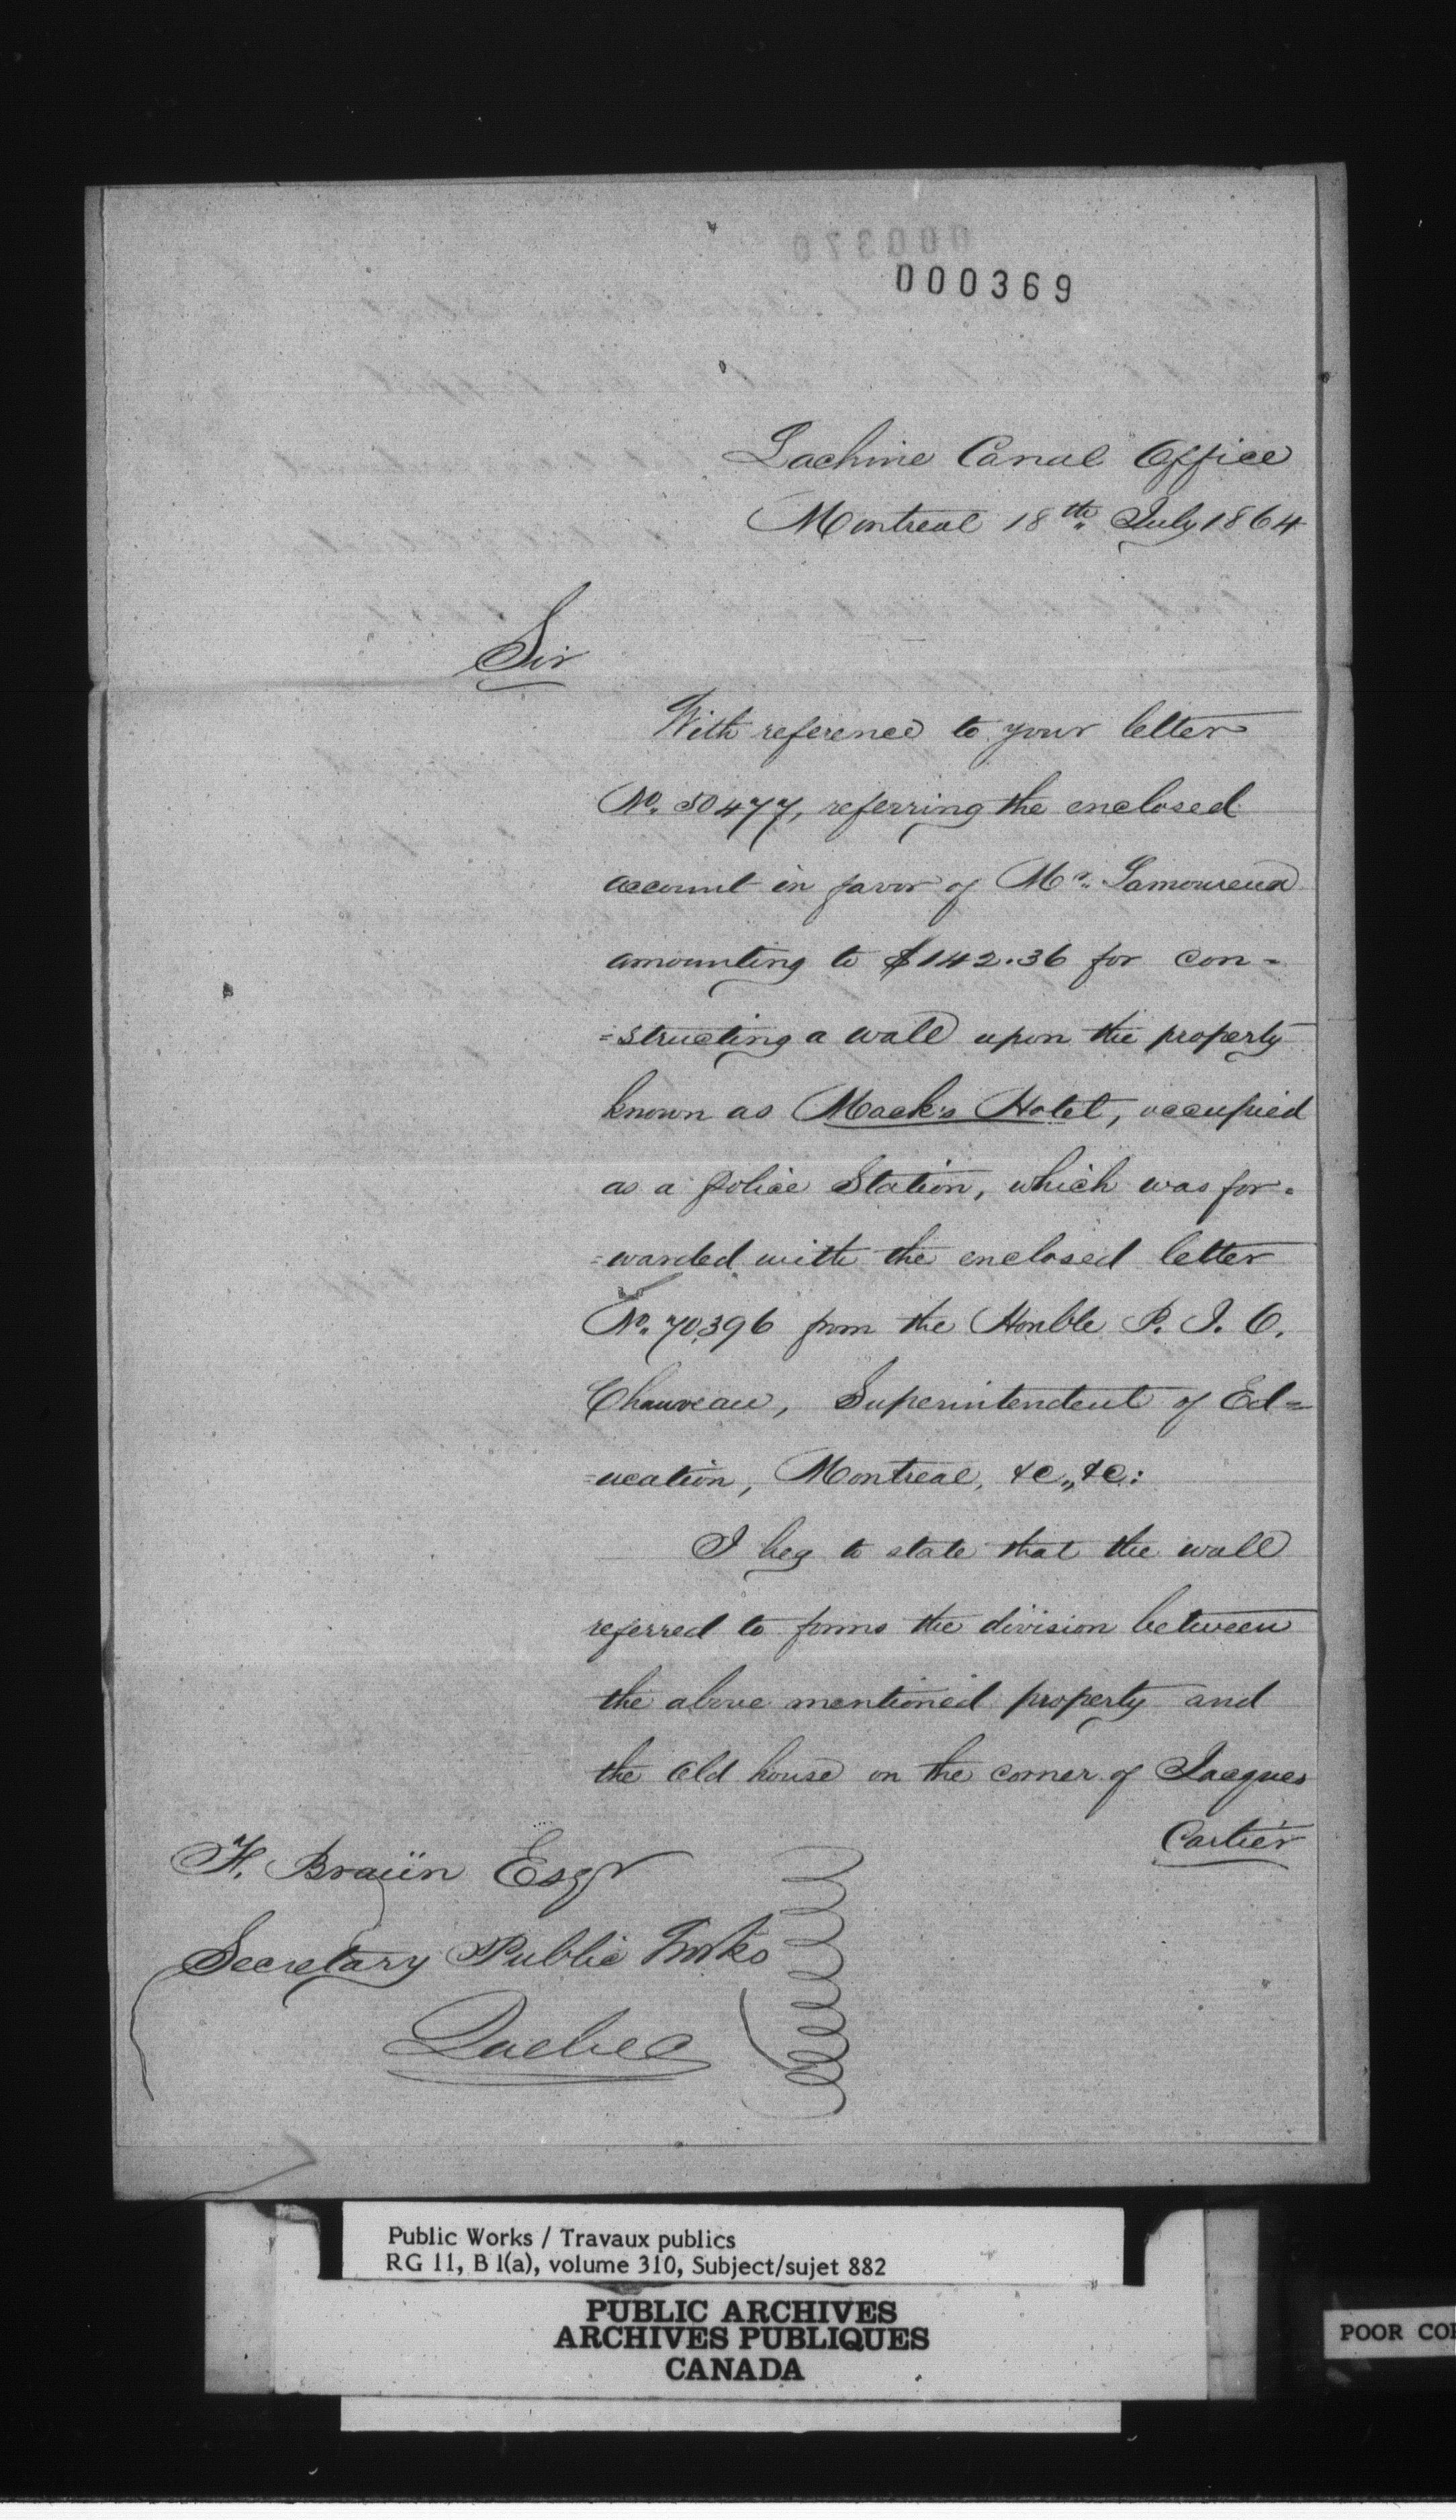 000370
000369
Lachine Canal Office
Montreal 18th July 1864
Sir
With reference to your letter
No. 50477, referring the enclosed
account in favor of Mr. Lamoureux
amounting to $142.36 for con=
=structing a wall upon the property
known as Mack's Hotel, occupied
as a police Station, which was for=
=warded with the enclosed letter
No. 70,396 from the Honble P. J. O.
Chauveau, Superintendent of Ed=
=ucation, Montreal, &c,, &c:
I beg to state that the wall
referred to forms the division between
the above mentioned property and
the old house on the corner of Jacques
Cartier
F. Braün Esqr
Secretary Public Works
Quebec
Public Works / Travaux publics
RG 11, B 1(a), volume 310, Subject/sujet 882
PUBLIC ARCHIVES
ARCHIVES PUBLIQUES
CANADA
POOR COP